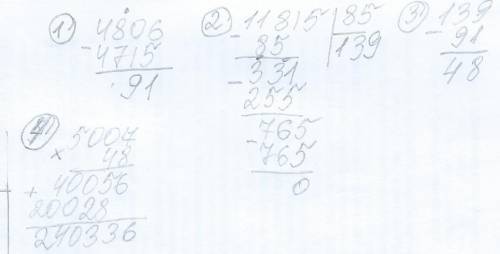 1) 4806
- 4715
91
2) - 11815 | 85
85 | 139
- 331
255
- 765
765
0
3) - 139
91
48
4) × 5007
48
+ 40056
20028
240336